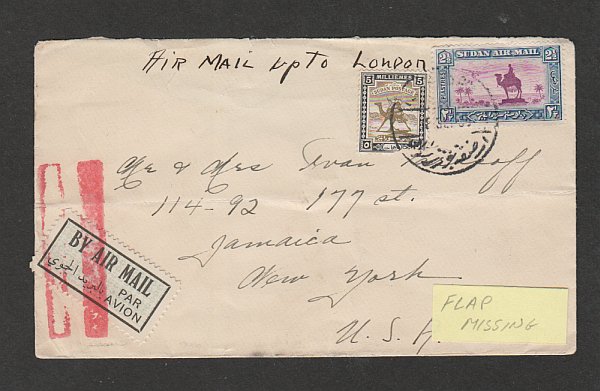 AIR MAIL up to London
5 MILLIEMES 5
SUDAN POSTAGE
2½ SUDAN AIR MAIL 2½
PIASTRES
Mr & Mrs Ivan
114-92 177 st.
Jamaica
New York
U. S. A.
BY AIR MAIL
بالبريد الجوي
PAR
AVION
FLAP
MISSING